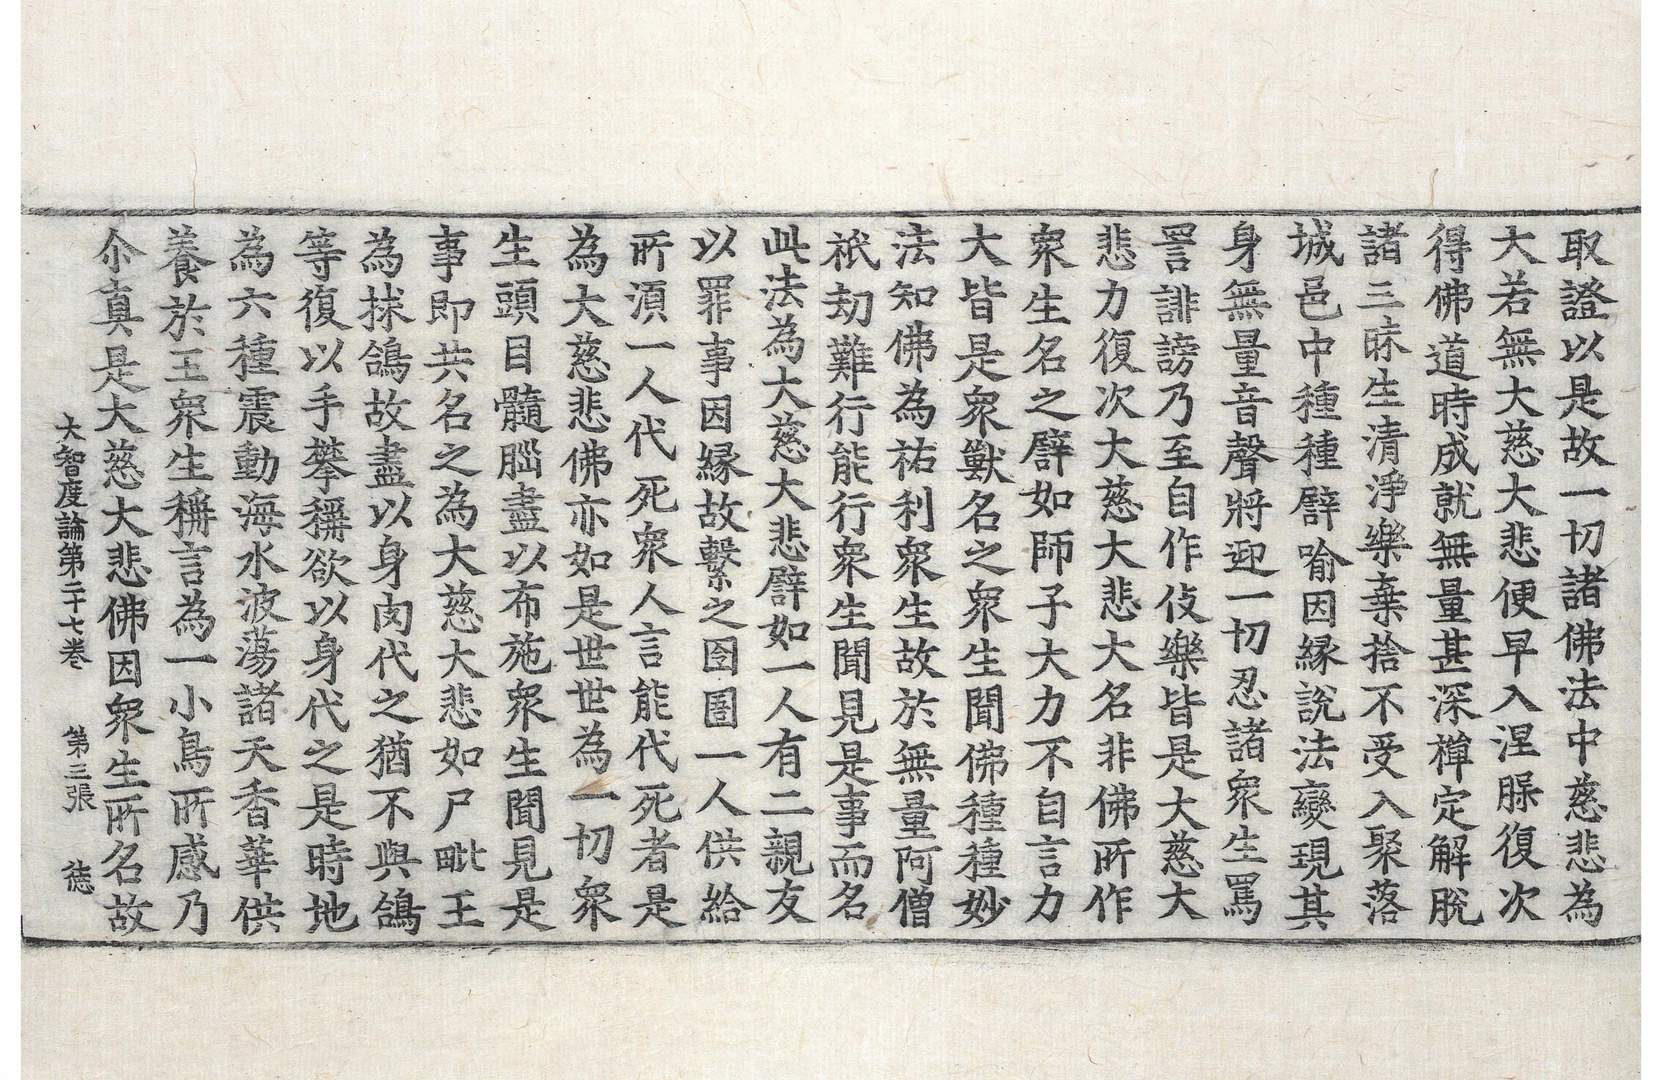 取證以是故一切諸佛法中慈悲為
大若無大慈大悲便早入涅槃復次
得佛道時成就無量甚深禪定解脫
諸三昧生清淨樂棄捨不受入聚落
城邑中種種譬喻因緣說法變現其
身無量音聲將迎一切忍諸衆生罵
詈誹謗乃至自作伎樂皆是大慈大
悲力復次大慈大悲大名非佛所作
衆生名之譬如師子大力不自言力
大皆是衆獸名之衆生聞佛種種妙
法知佛為祐利衆生故於無量阿僧
祇劫難行能行衆生聞見是事而名
此法為大慈大悲譬如一人有二親友
以罪事因緣故繫之囹圄一人供給
所湏一人代死衆人言能代死者是
為大慈悲佛亦如是世世為一切衆
生頭目髓腦盡以布施衆生聞見是
事即共名之為大慈大悲如尸毗王
為捄鴿故盡以身肉代之猶不與鴿
等復以手攀稱欲以身代之是時地
為六種震動海水波蕩諸天香華供
養於王衆生稱言為一小鳥所感乃
尒真是大慈大悲佛因衆生所名故
大智度論第二十七卷　第三張　德